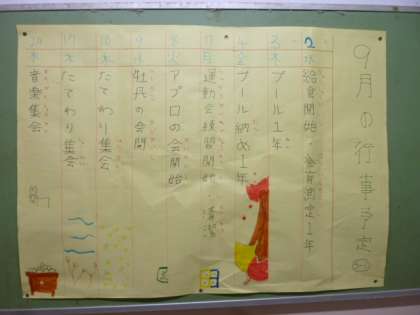 9月の行事予定
2 水 給食開始・発育測定1年
3 木 プール1年
4 金 プール納め1年
7 月 運動会練習開始・清潔
8 火 アプロの会開始
9 水 牡丹の会開
16 水 たてわり集会
17 木 たてわり集会
音楽集会